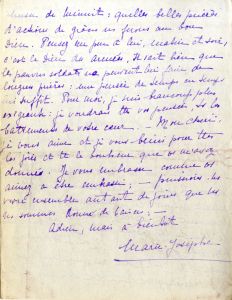 messe de minuit : quelles belles prières
d'actions de grâces en ferons au bon
Dieu. Pensez un peu à lui, matin et soir,
c'est le Dieu des armées. Il sait bien que
les pauvres soldats ne peuvent lui dire de
longues prières : une pensée de temps en temps
lui suffit. Pour moi, je suis beaucoup plus
exigeante : je voudrais vos pensées, les
battements de votre cœur. Mon chéri,
je vous aime et je vous bénis pour
les joies et le bonheur que vous m'avez
donnés. Je vous embrasse comme vous
aimez à être embrassé ; — puissions-
vivre ensemble autant de jours que
nous sommes de baisers ; —
Adieu, mais à bientôt
Marie-Josèphe